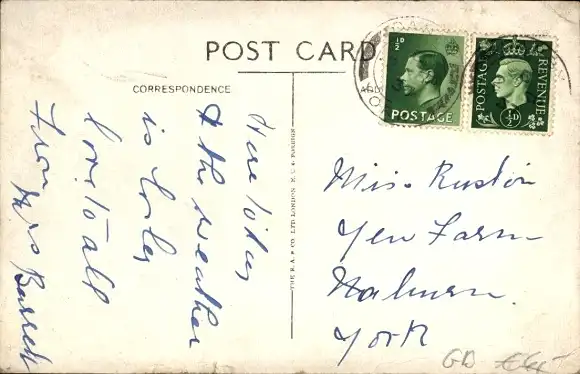 POST CARD
CORRESPONDENCE
½D
POSTAGE
POSTAGE
REVENUE
½D
THE R.A.P. CO. LTD LONDON. E.C.4
Here today
& the weather
is lovely
love to all
From Mrs Barrett
Miss Ruston
Yew Farm
York